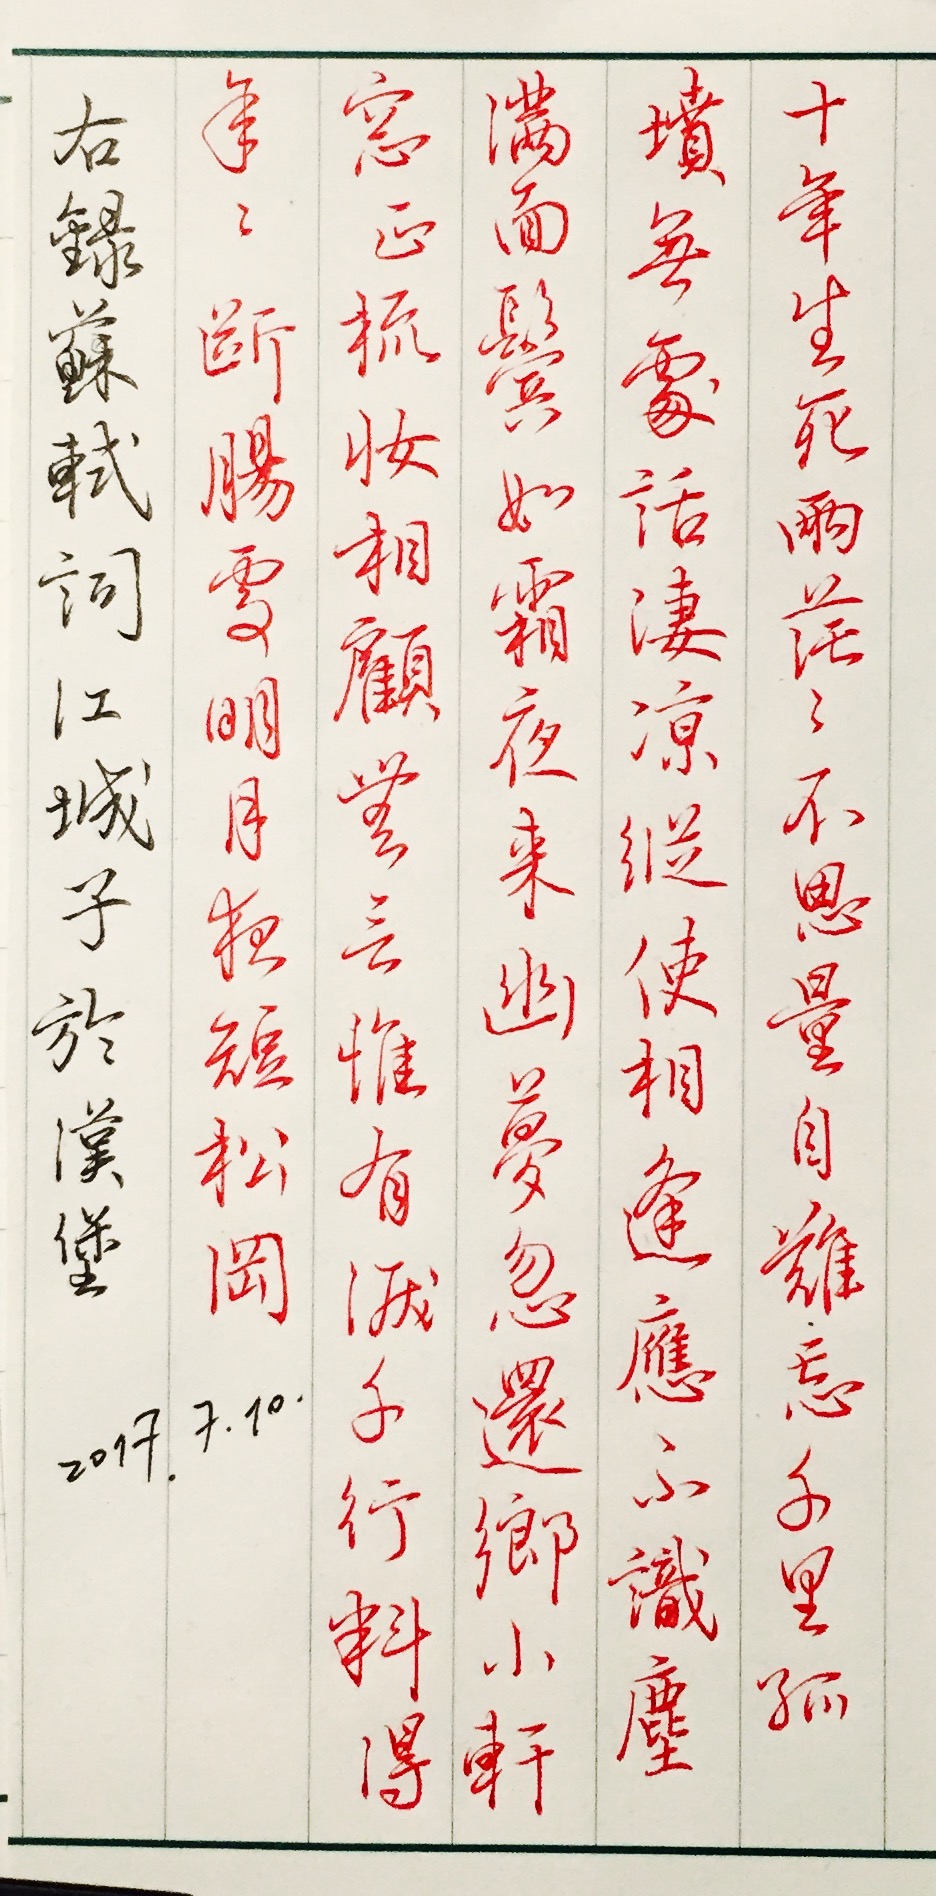 十年生死兩茫〻不思量自難忘千里孤
墳無處話淒涼縱使相逢應不識塵
滿面鬢如霜夜來幽夢忽還鄉小軒
窓正梳妝相顧無言惟有淚千行料得
年〻斷腸處明月夜短松岡
右錄蘇軾詞江城子於漢堡
2017.7.10.